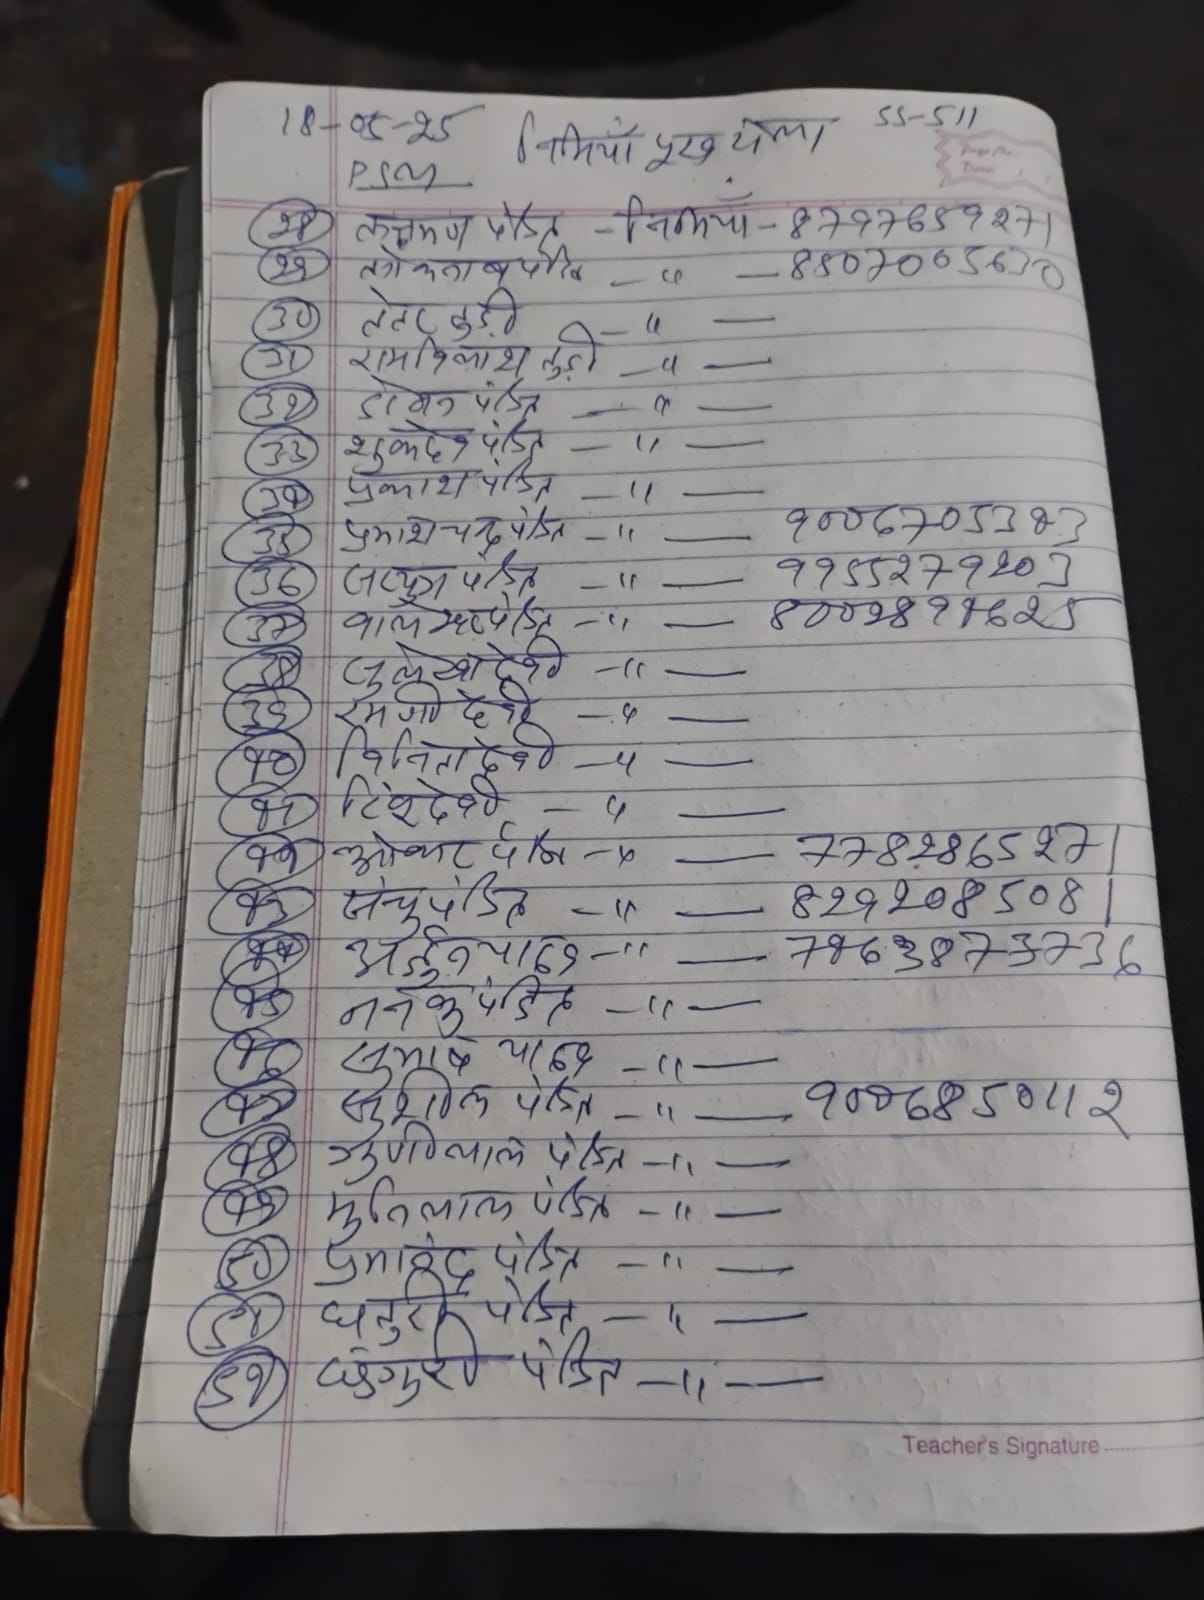 18-05-25 निमियाँ पुरब टोला SS-511
PSM
28 लक्ष्मण पंडित - निमियाँ - 8797659271
29 पंडित - " - 8807005630
30 तेतर तुड़ी - " -
31 रामविलाश तुड़ी - " -
32 डोमन पंडित - " -
33 शुकदेव पंडित - " -
34 प्रकाश पंडित - " -
35 प्रकाश चन्द्र पंडित - " - 9006705323
36 पंडित - " - 9955279203
37 पंडित - " - 8002897625
38 सुलेखा देवी - " -
39 रमणी देवी - " -
40 विनिता देवी - " -
41 देवी - " -
42 ओमकार पंडित - " - 7782865271
43 पंडित - " - 8292085081
44 अर्जुन यादव - " - 7763873736
45 ननकु पंडित - " -
46 सुभाष यादव - " -
47 सुशील पंडित - " - 9006850112
48 पंडित - " -
49 मुनिलाल पंडित - " -
50 पंडित - " -
51 पंडित - " -
52 पंडित - " -
Teacher's Signature